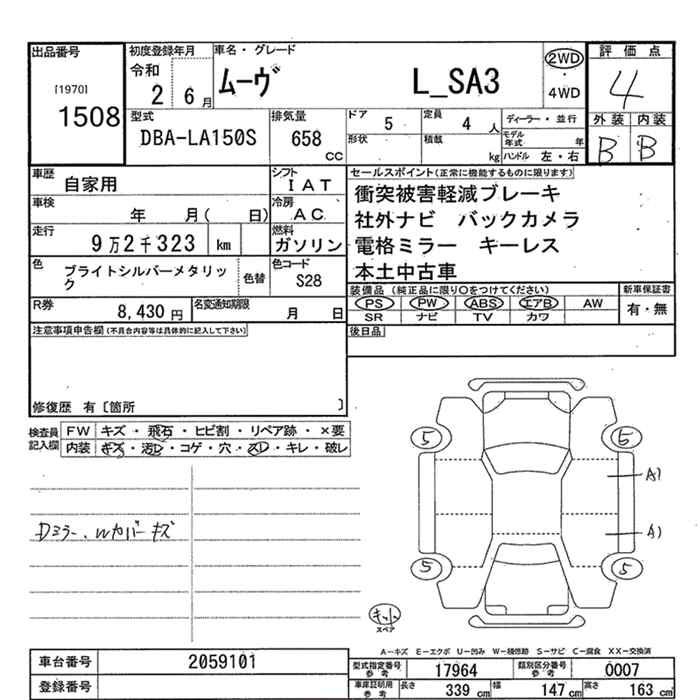 出品番号 初度登録年月 車名・グレード 評価点
[1970] 1508 令和 2 6月 ムーヴ L_SA3 2WD・4WD 4
外装 内装
B B
型式 DBA-LA150S 排気量 658 cc ドア 5 定員 4人 ディーラー・並行
形状 積載 kg モデル年式 年
ハンドル 左・右
車歴 自家用 シフト IAT セールスポイント(正常に機能するものに限ります)
車検 年 月( 日) 冷房 AC 衝突被害軽減ブレーキ
走行 9万2千323 km 燃料 ガソリン 社外ナビ バックカメラ
電格ミラー キーレス
色 ブライトシルバーメタリック 色替 色コード S28 本土中古車
装備品(純正品に限り○をつけてください) 新車保証書
PS PW ABS エアB AW 有・無
SR ナビ TV カワ
R券 8,430円 名変通知期限 月 日
注意事項申告欄(不具合内容等は具体的に記入して下さい) 後日品
修復歴 有〔箇所 〕
検査員記入欄 FW キズ・飛石・ヒビ割・リペア跡・×要
内装 キズ・汚レ・コゲ・穴・スレ・キレ・破レ
5 5
A1
A1
Dミラー、Wカバーキズ
5 5
キット
スペア
A−キズ E−エクボ U−凹み W−補修跡 S−サビ C−腐食 XX−交換済
車台番号 2059101 型式指定番号参考 17964 類別区分番号参考 0007
登録番号 車庫証明用参考 長さ 339cm 幅 147cm 高さ 163cm